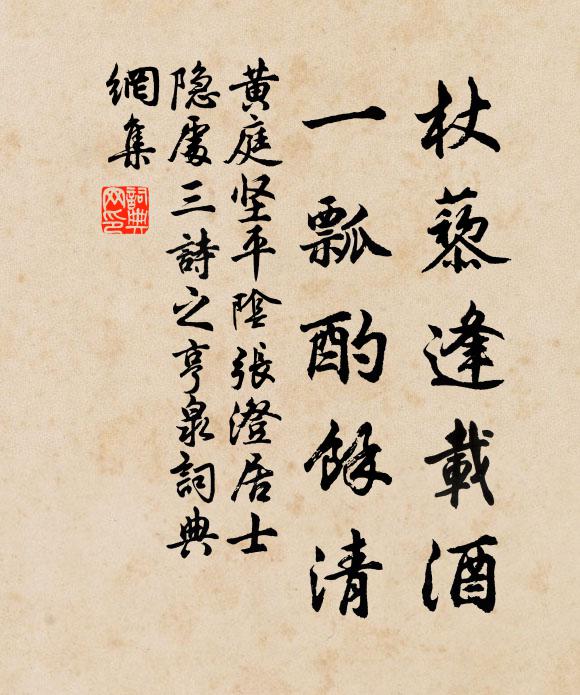 杖藜逢載酒
一瓢酌餘清
黃庭坚平陰張澄居士
隐處三詩之亨泉詞典
網集
詞典
网印